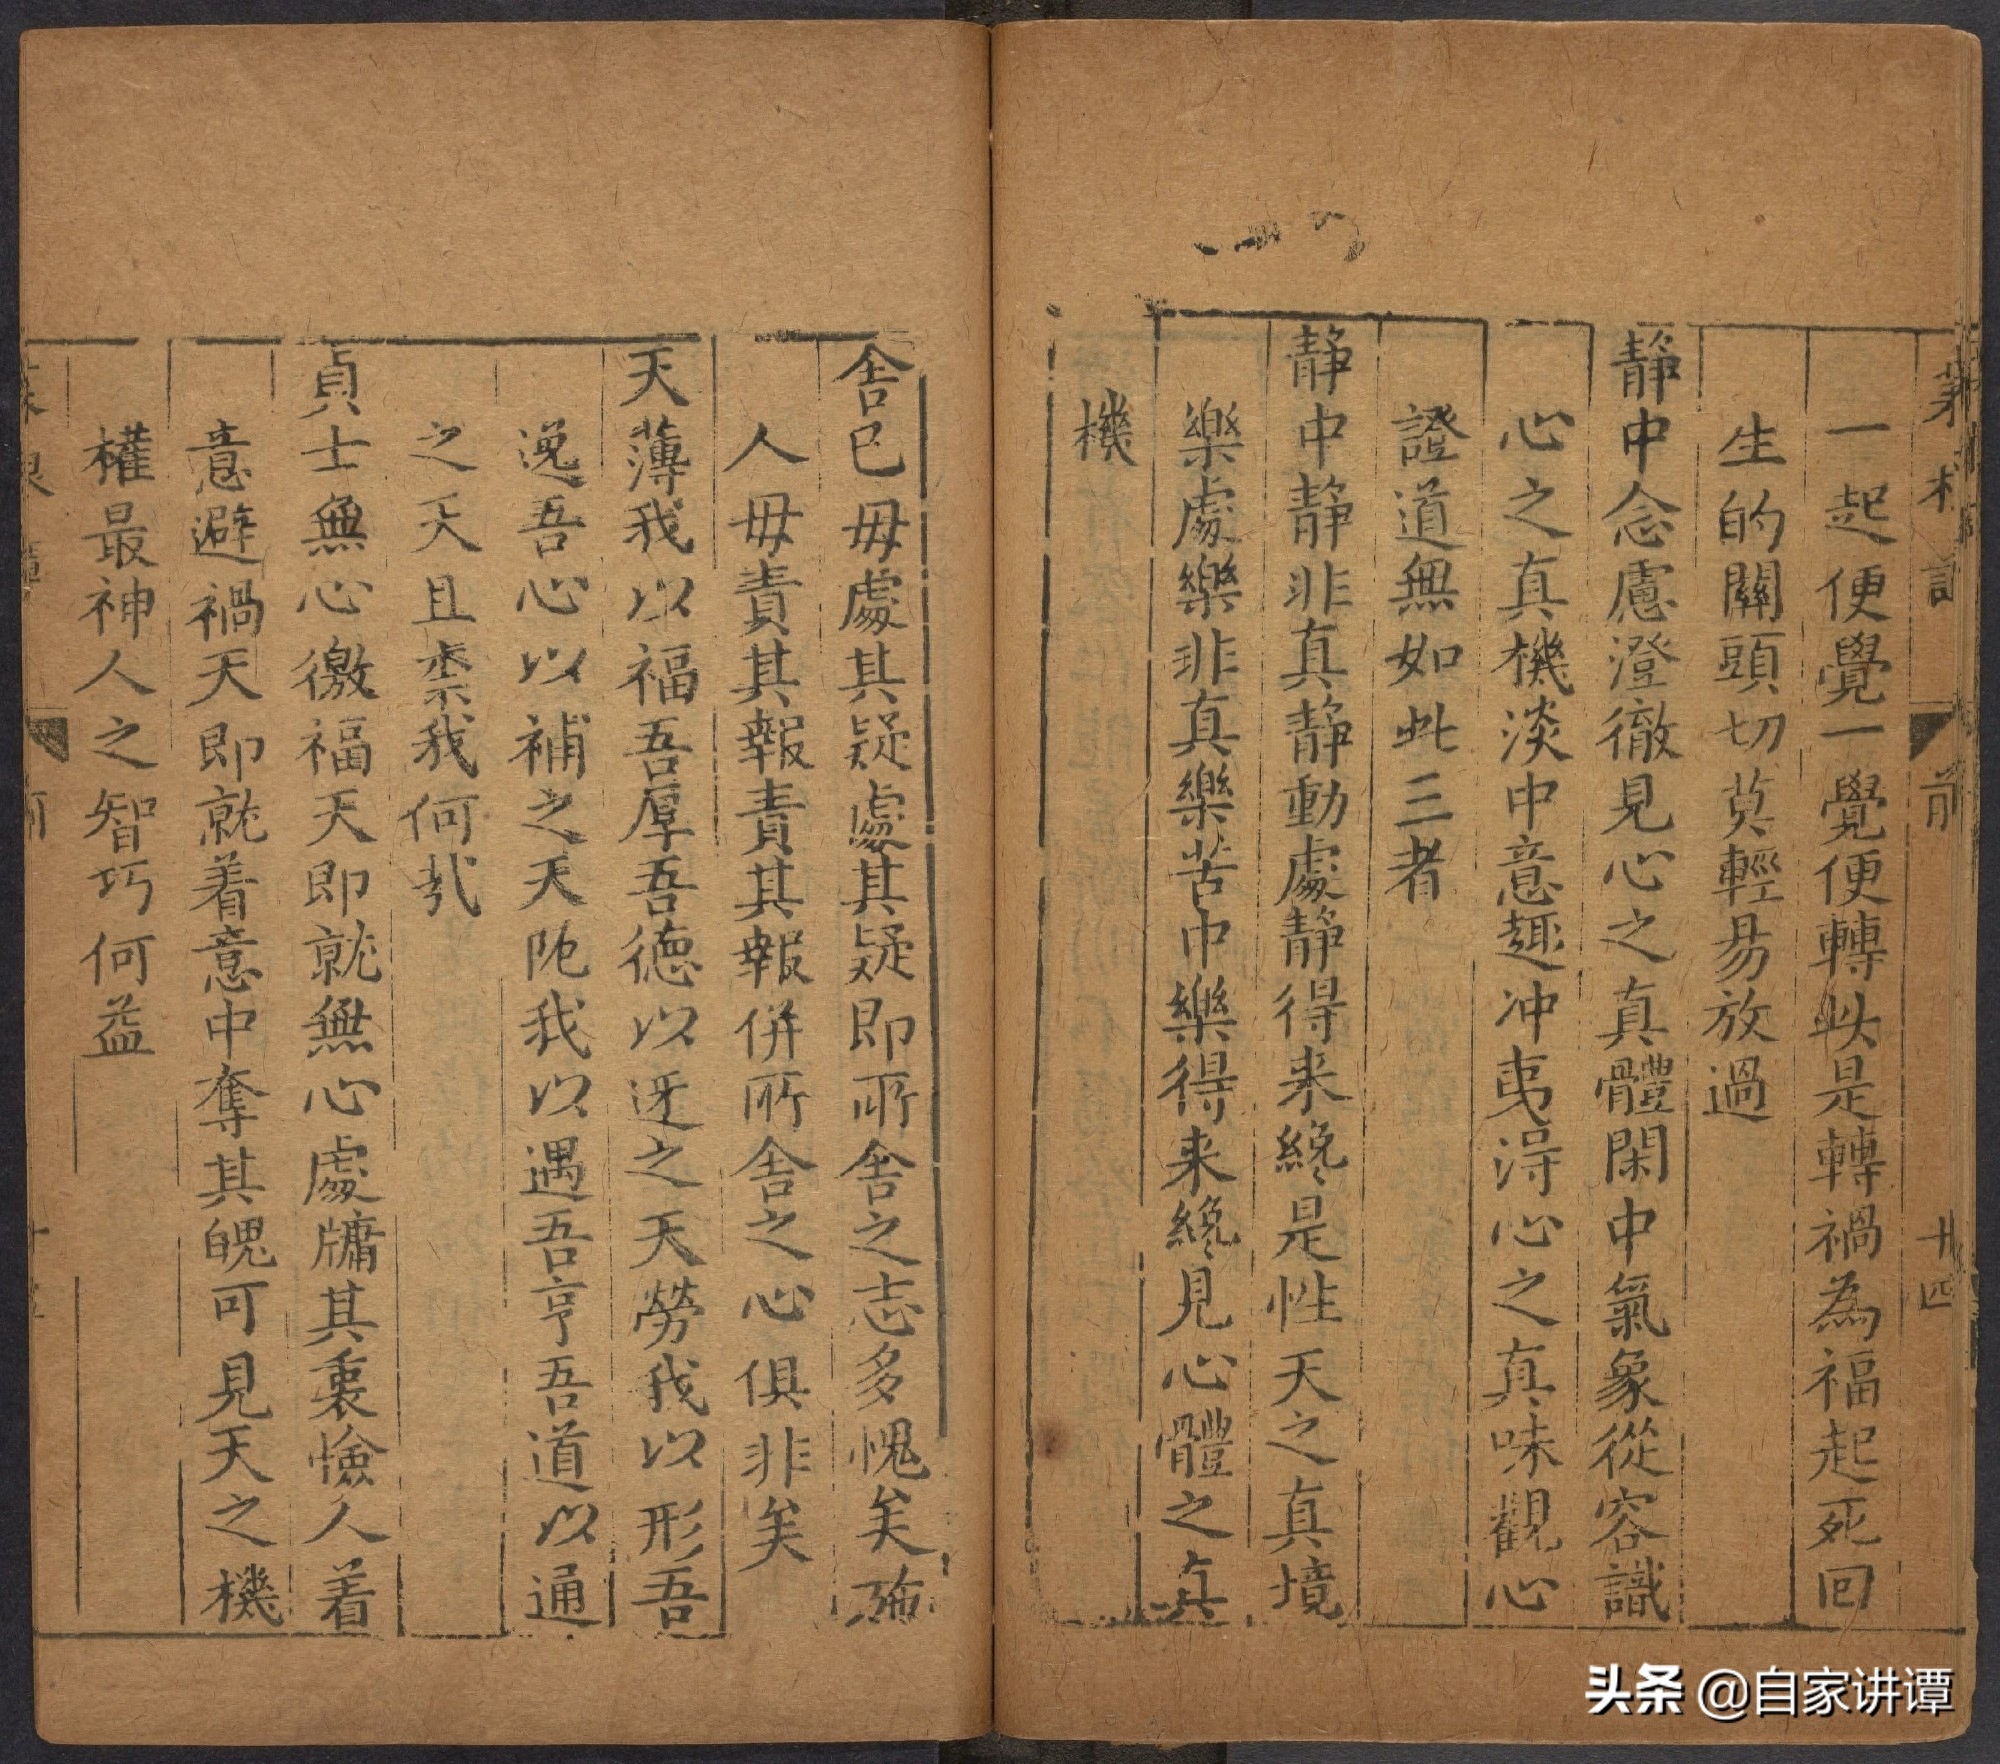 菜根譚
前
十四
一起便覺一覺便轉此是轉禍為福起死回
生的關頭切莫輕易放過
静中念慮澄徹見心之真體閑中氣象從容識
心之真機淡中意趣冲夷淂心之真味觀心
證道無如此三者
静中静非真静動處静得来纔是性天之真境
樂處樂非真樂苦中樂得来纔見心體之真
機
舍已毋處其疑處其疑即所舍之志多愧矣施
人毋責其報責其報併所舍之心俱非矣
天薄我以福吾厚吾德以迓之天勞我以形吾
逸吾心以補之天阨我以遇吾亨吾道以通
之天且柰我何㢤
貞士無心徼福天即就無心處牖其衷憸人着
意避禍天即就着意中奪其魄可見天之機
權最神人之智巧何益
头条 @自家讲谭